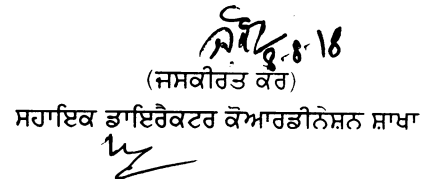 8-8-18
(ਜਸਕੀਰਤ ਕੌਰ)
ਸਹਾਇਕ ਡਾਇਰੈਕਟਰ ਕੋਆਰਡੀਨੇਸ਼ਨ ਸ਼ਾਖਾ